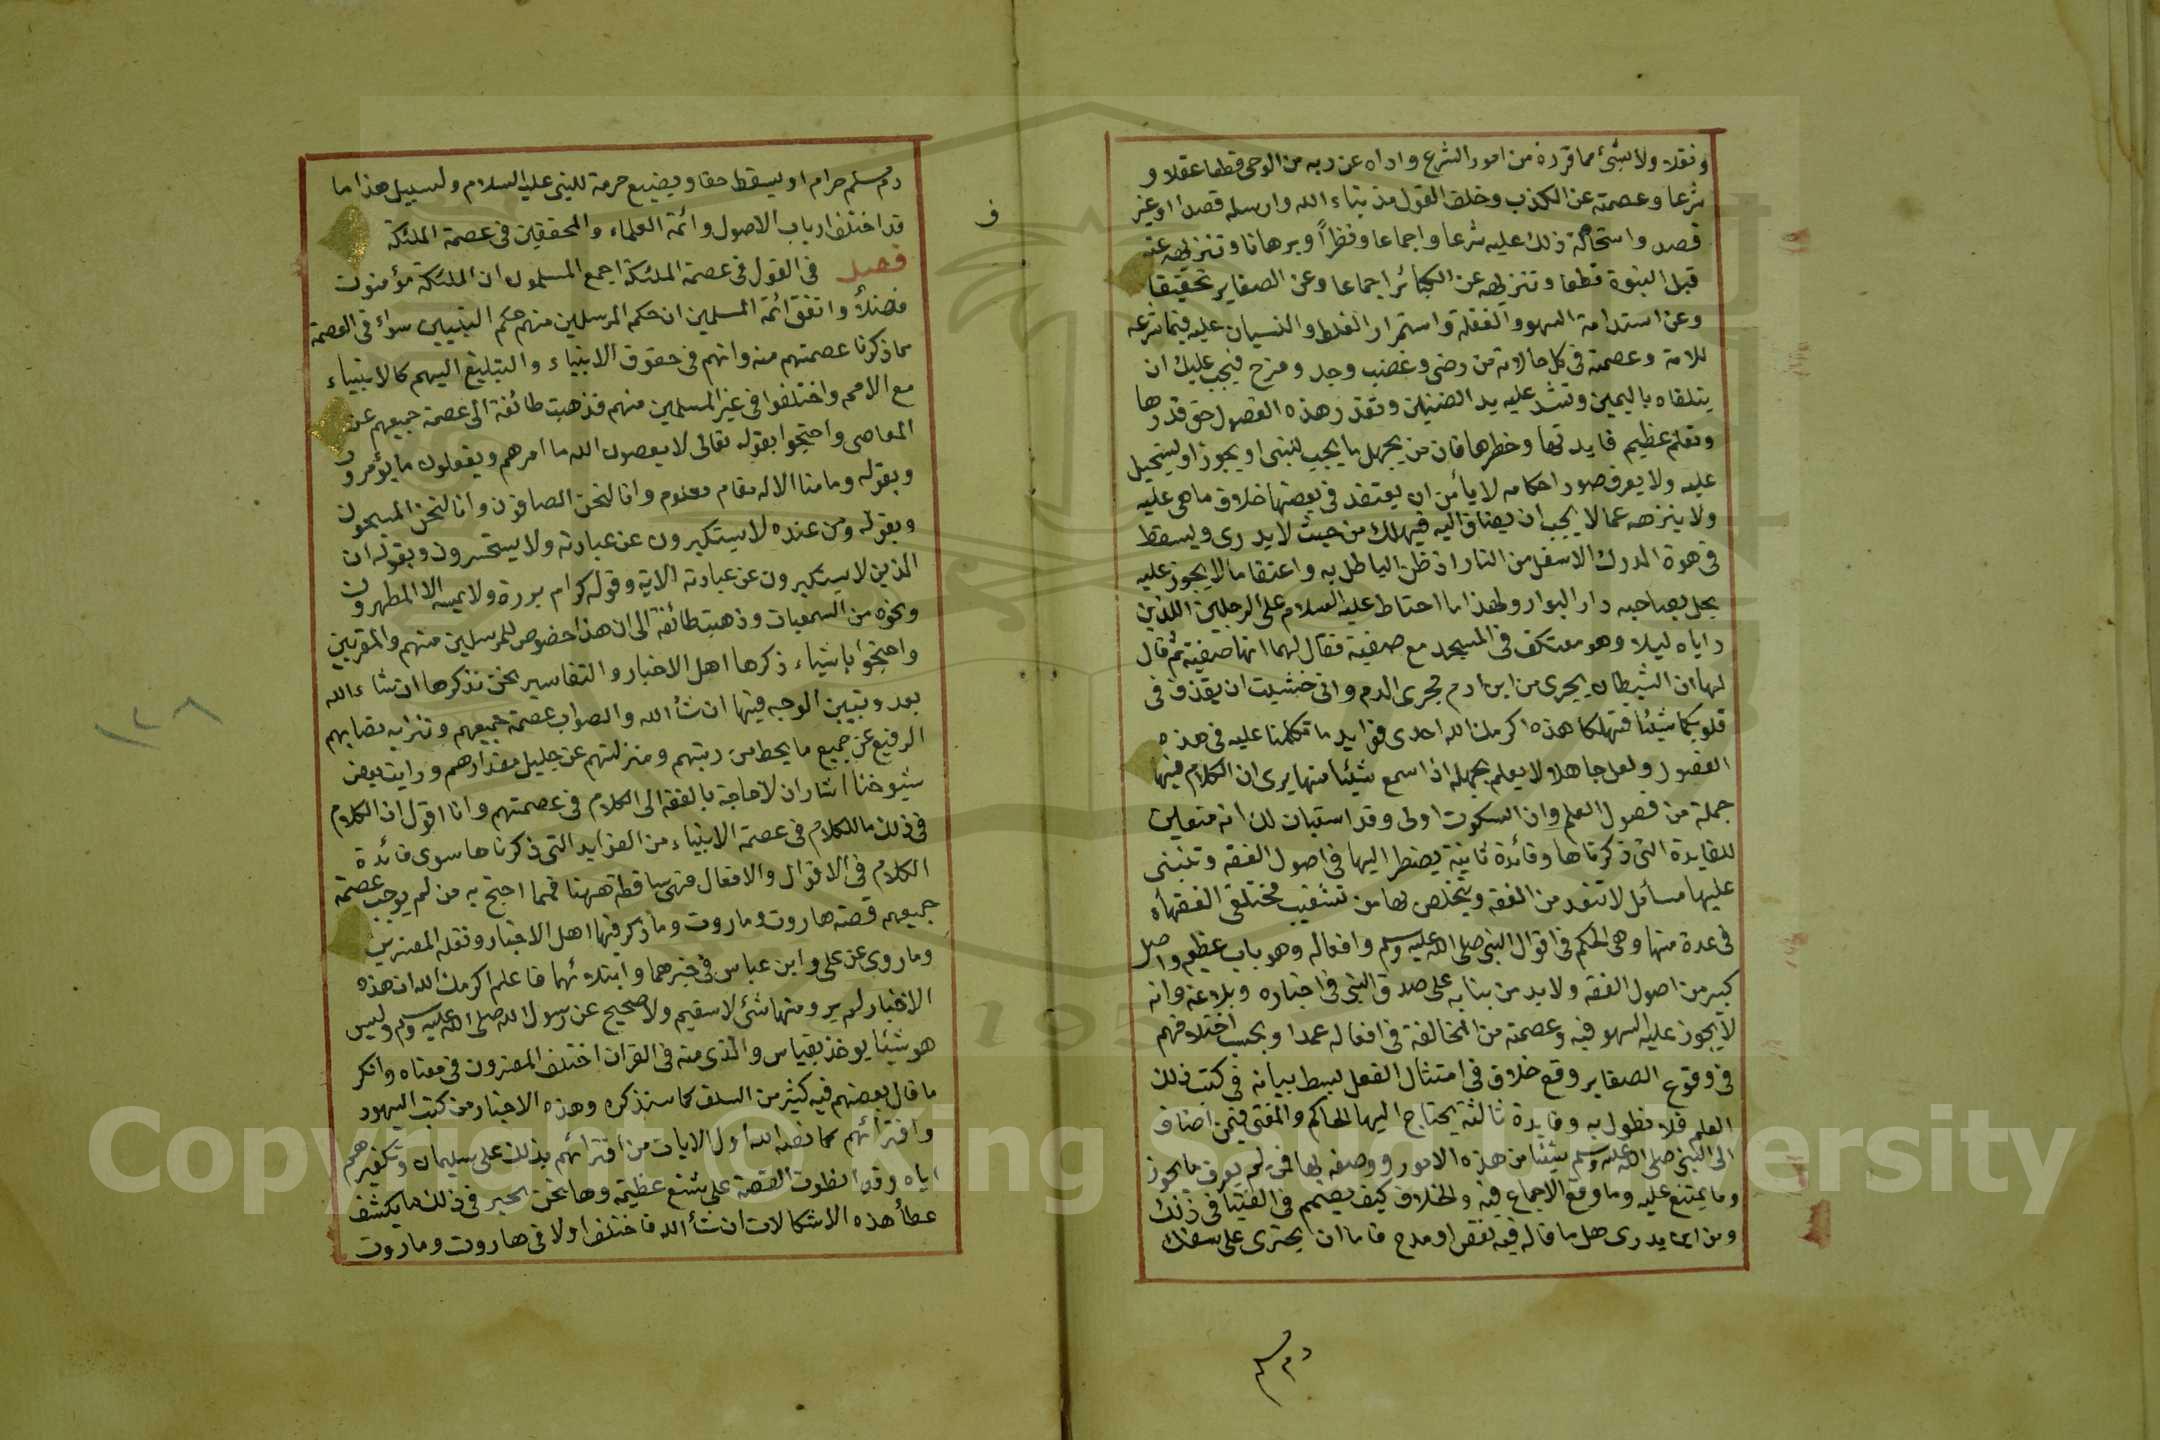 ونقلا ولا بشئ مما قرره من امور الشرع واداه عن ربه من الوحى قطعا عقلا و
شرعا وعصمته عن الكذب وخلف القول منذ نبأه الله وارسله قصدا او غير
قصد واستحالة ذلك عليه شرعا واجماعا ونظراً وبرهانا وتنزيهه عنه
قبل النبوة قطعا وتنزيهه عن الكبائر اجماعا وعن الصغاير تحقيقا
وعن استدامة السهو والغفلة واستمرار الغلط والنسيان عليه فيما شرعه
للامة وعصمته فى كل حالاته من رضى وغضب وجد ومزح فيجب عليك ان
يتلقاه باليمين وتشد عليه يد الضنين وتقدر هذه الفصول حق قدرها
وتعلم عظيم فايدتها وخطرها فان من يجهل ما يجب للنبى او يجوز او يستحيل
عليه ولا يعرف صور احكامه لا يأمن ان يعتقد فى بعضها خلاف ما هى عليه
ولا ينزهه عما لا يجب ان يضاف اليه فيهلك من حيث لا يدرى ويسقط
فى هوة الدرك الاسفل من النار اذ ظن الباطل به واعتقاد ما لا يجوز عليه
يحل بصاحبه دار البوار ولهذا ما احتاط عليه السلام على الرجلين اللذين
راياه ليلا وهو معتكف فى المسجد مع صفية فقال لهما انها صفية ثم قال
لهما ان الشيطان يجرى من ابن ادم مجرى الدم وانى خشيت ان يقذف فى
قلوبكما شيئا فتهلكا هذه اكرمك الله احدى فوايد ما تكلمنا عليه فى هذه
الفصول ولعل جاهلا لا يعلم بجهله اذا سمع شيئا منها يرى ان الكلام فيها
جملة من فصول العلم وان السكوت اولى وقد استبان لك انه متعين
للفايدة التى ذكرناها وفائدة ثانية يضطر اليها فى اصول الفقه وتبنى
عليها مسائل لا تنعد من الفقه ويتخلص بها من تشغيب مختلفى الفقهاء
فى عدة منها وهى الحكم فى اقوال النبى صلى الله عليه وسلم وافعاله وهو باب عظيم واصل
كبير من اصول الفقه ولا بد من بنايه على صدق النبى فى اخباره وبلاغه وانه
لا يجوز عليه السهو فيه وعصمته من المخالفة فى افعاله عمدا وبحسب اختلافهم
فى وقوع الصغاير وقع خلاف فى امتثال الفعل بسط بيانه فى كتب ذلك
العلم فلا نطول به وفايدة ثالثة يحتاج اليها الحاكم والمفتى فيمن اضاف
الى النبى صلى الله عليه وسلم شيئا من هذه الامور ووصفه بها فمن لم يعرف ما يجوز
وما يمتنع عليه وما وقع الاجماع فيه والخلاف كيف يصمم فى الفتيا فى ذلك
ومن اين يدرى هل ما قاله فيه نقص او مدح فاما ان يجترى على سفك
دم مسلم
ف
دم مسلم حرام او يسقط حقا ويضيع حرمة للنبى عليه السلام ولسبيل هذا ما
قد اختلف ارباب الاصول وائمة العلماء والمحققين فى عصمة الملئكة
فصل فى القول فى عصمة الملئكة اجمع المسلمون ان الملئكة مؤمنون
فضلاً واتفق ائمة المسلمين ان حكم المرسلين منهم حكم النبيين سواء فى العصمة
مما ذكرنا عصمتهم منه وانهم فى حقوق الانبياء والتبليغ اليهم كالانبياء
مع الامم واختلفوا فى غير المسلمين منهم فذهبت طائفة الى عصمة جميعهم عن
المعاصى واحتجوا بقوله تعالى لا يعصون الله ما امرهم ويفعلون ما يؤمرون
وبقوله وما منا الا له مقام معلوم وانا لنحن الصافون وانا لنحن المسبحون
وبقوله ومن عنده لا يستكبرون عن عبادته ولا يستحسرون وبقوله ان
الذين لا يستكبرون عن عبادته الاية وقوله كرام بررة ولا يمسه الا المطهرون
ونحوه من السمعيات وذهبت طائفة الى ان هذا خصوص للمرسلين منهم والمقربين
واحتجوا باشياء ذكرها اهل الاخبار والتفاسير نحن نذكرها ان شاء الله
بعد ونبين الوجه فيها ان شأ الله والصواب عصمة جميعهم وتنزيه نصابهم
الرفيع عن جميع ما يحط من رتبتهم ومنزلتهم عن جليل مقدارهم ورايت بعض
شيوخنا اشار ان لا حاجة بالفقه الى الكلام فى عصمتهم وانا اقول ان الكلام
فى ذلك ما للكلام فى عصمة الانبياء من الفوايد التى ذكرناها سوى فائدة
الكلام فى الاقوال والافعال فهى ساقطة ههنا فمما احتج به من لم يوجب عصمة
جميعهم قصة هاروت وماروت وما ذكر فيها اهل الاخبار ونقله المفسرين
وما روى عن على وابن عباس فى خبرهما وابتلائهما فاعلم اكرمك الله ان هذه
الاخبار لم يرو منها شئ لا سقيم ولا صحيح عن رسول الله صلى الله عليه وسلم وليس
هو شيئا يوخذ بقياس والذى منه فى القران اختلف المفسرون فى معناه وانكر
ما قال بعضهم فيه كثير من السلف كما سنذكره وهذه الاخبار من كتب اليهود
وافترائهم كما نصه الله اول الايات من افترائهم بذلك على سليمان وتكفيرهم
اياه وقد انطوت القصة على شنع عظيمة وها نحن نحبر فى ذلك ما يكشف
غطأ هذه الاشكالات ان شأ الله فاختلف اولا فى هاروت وماروت
١٢٨
Copyright © King Saud University
1957